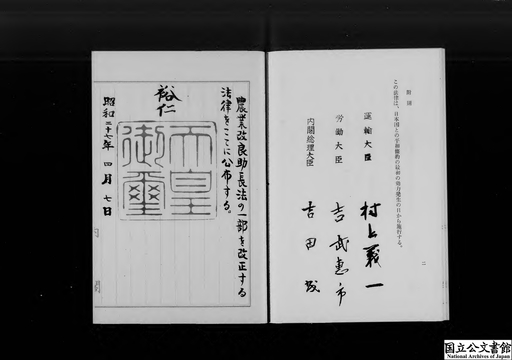 附則
この法律は、日本国との平和条約の最初の効力発生の日から施行する。
運輸大臣 村上義一
労働大臣 吉武恵市
内閣総理大臣 吉田茂
二
農業改良助長法の一部を改正する
法律をここに公布する。
裕仁
天皇
御璽
昭和二十七年四月七日
内閣
国立公文書館
National Archives of Japan